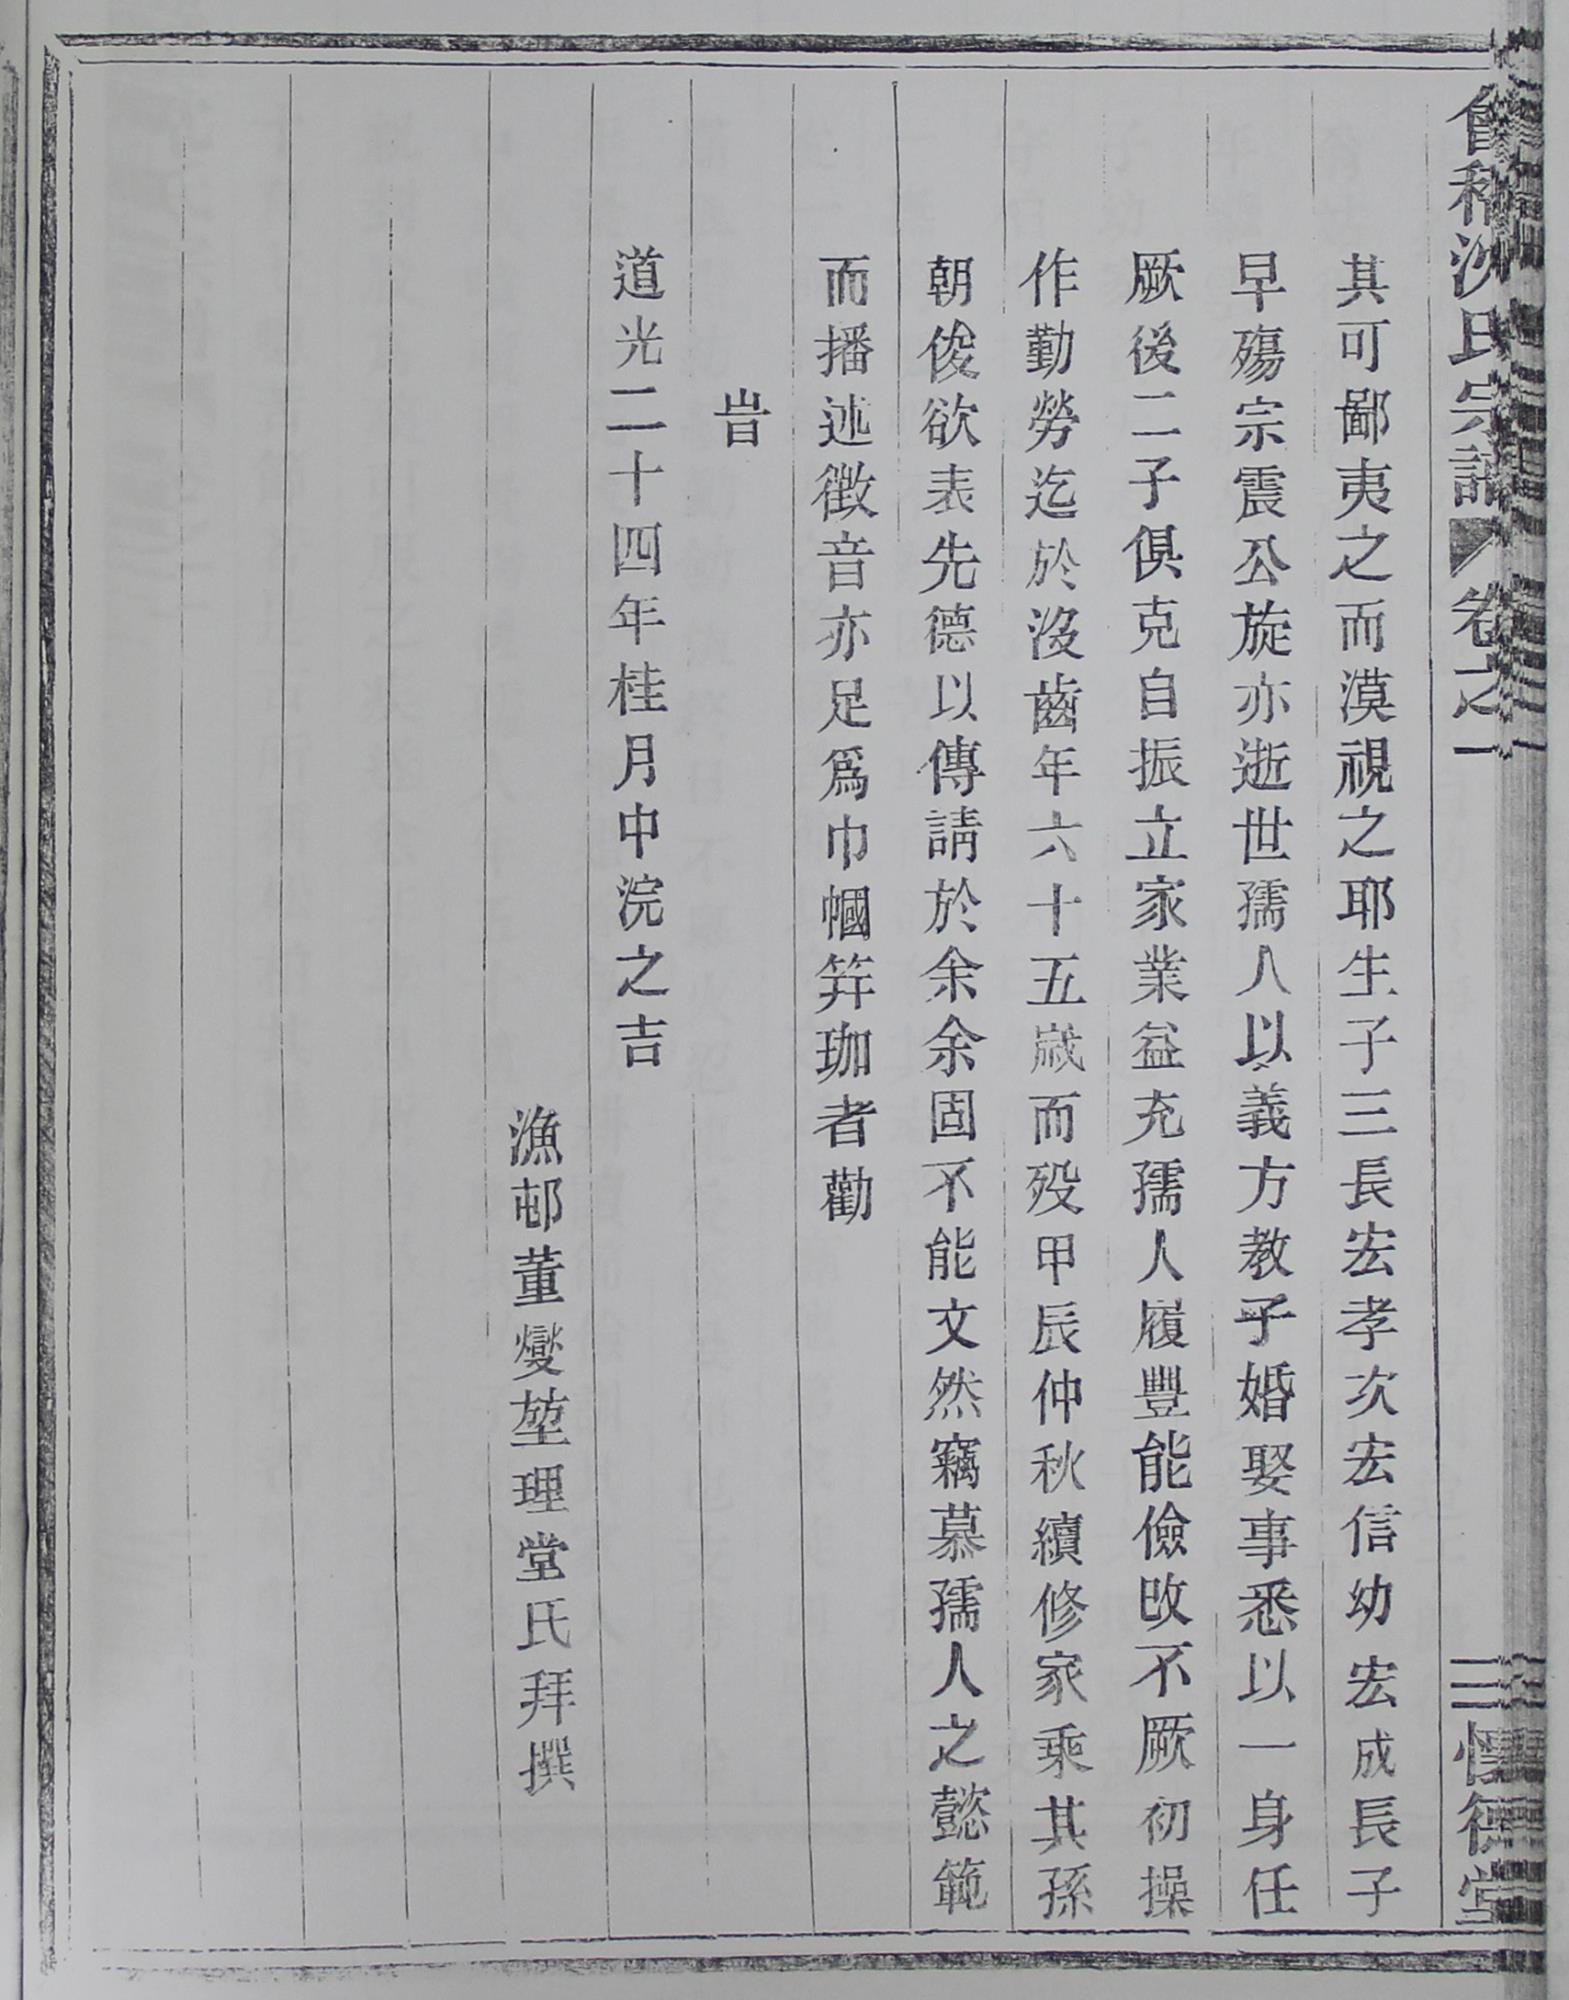 會稽沈氏宗譜 卷之一 三 懷德堂
其可鄙夷之而漠視之耶生子三長宏孝次宏信幼宏成長子
早殤宗震公旋亦逝世孺人以義方教子婚娶事悉以一身任
厥後二子俱克自振立家業益充孺人履豐能儉改不厥初操
作勤勞迄於沒齒年六十五歲而歿甲辰仲秋續修家乘其孫
朝俊欲表先德以傳請於余余固不能文然竊慕孺人之懿範
而播述徽音亦足爲巾幗笄珈者勸
旹
道光二十四年桂月中浣之吉
漁邨董燮堃理堂氏拜撰